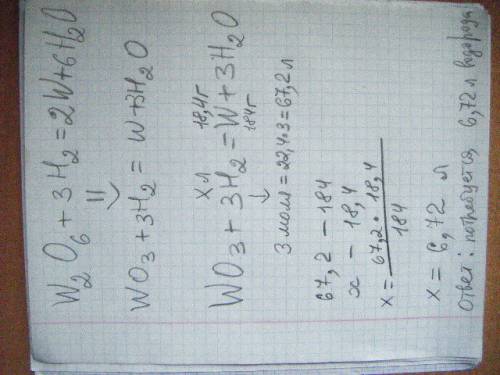 W₂O₆ + 3H₂ = 2W + 6H₂O
⇓
WO₃ + 3H₂ = W + 3H₂O
x л 18,4г
WO₃ + 3H₂ = W + 3H₂O
↓ 184г
3 моля = 22,4·3 = 67,2 л
67,2 – 184
x – 18,4
x = 67,2 · 18,4
184
x = 6,72 л
Ответ: потребуется 6,72 л водорода